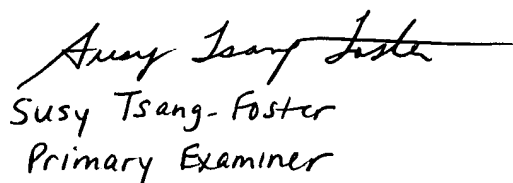 Susy Tsang Foster
Susy Tsang-Foster
Primary Examiner